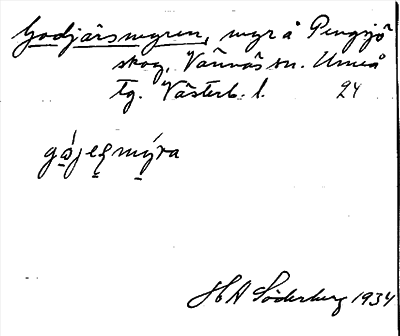 Godjärsmyren, myr å Pengsjö
skog, Vännäs sn. Umeå
tg. Västerb. l. 24
gójeᶉmýra
H A Söderberg 1934